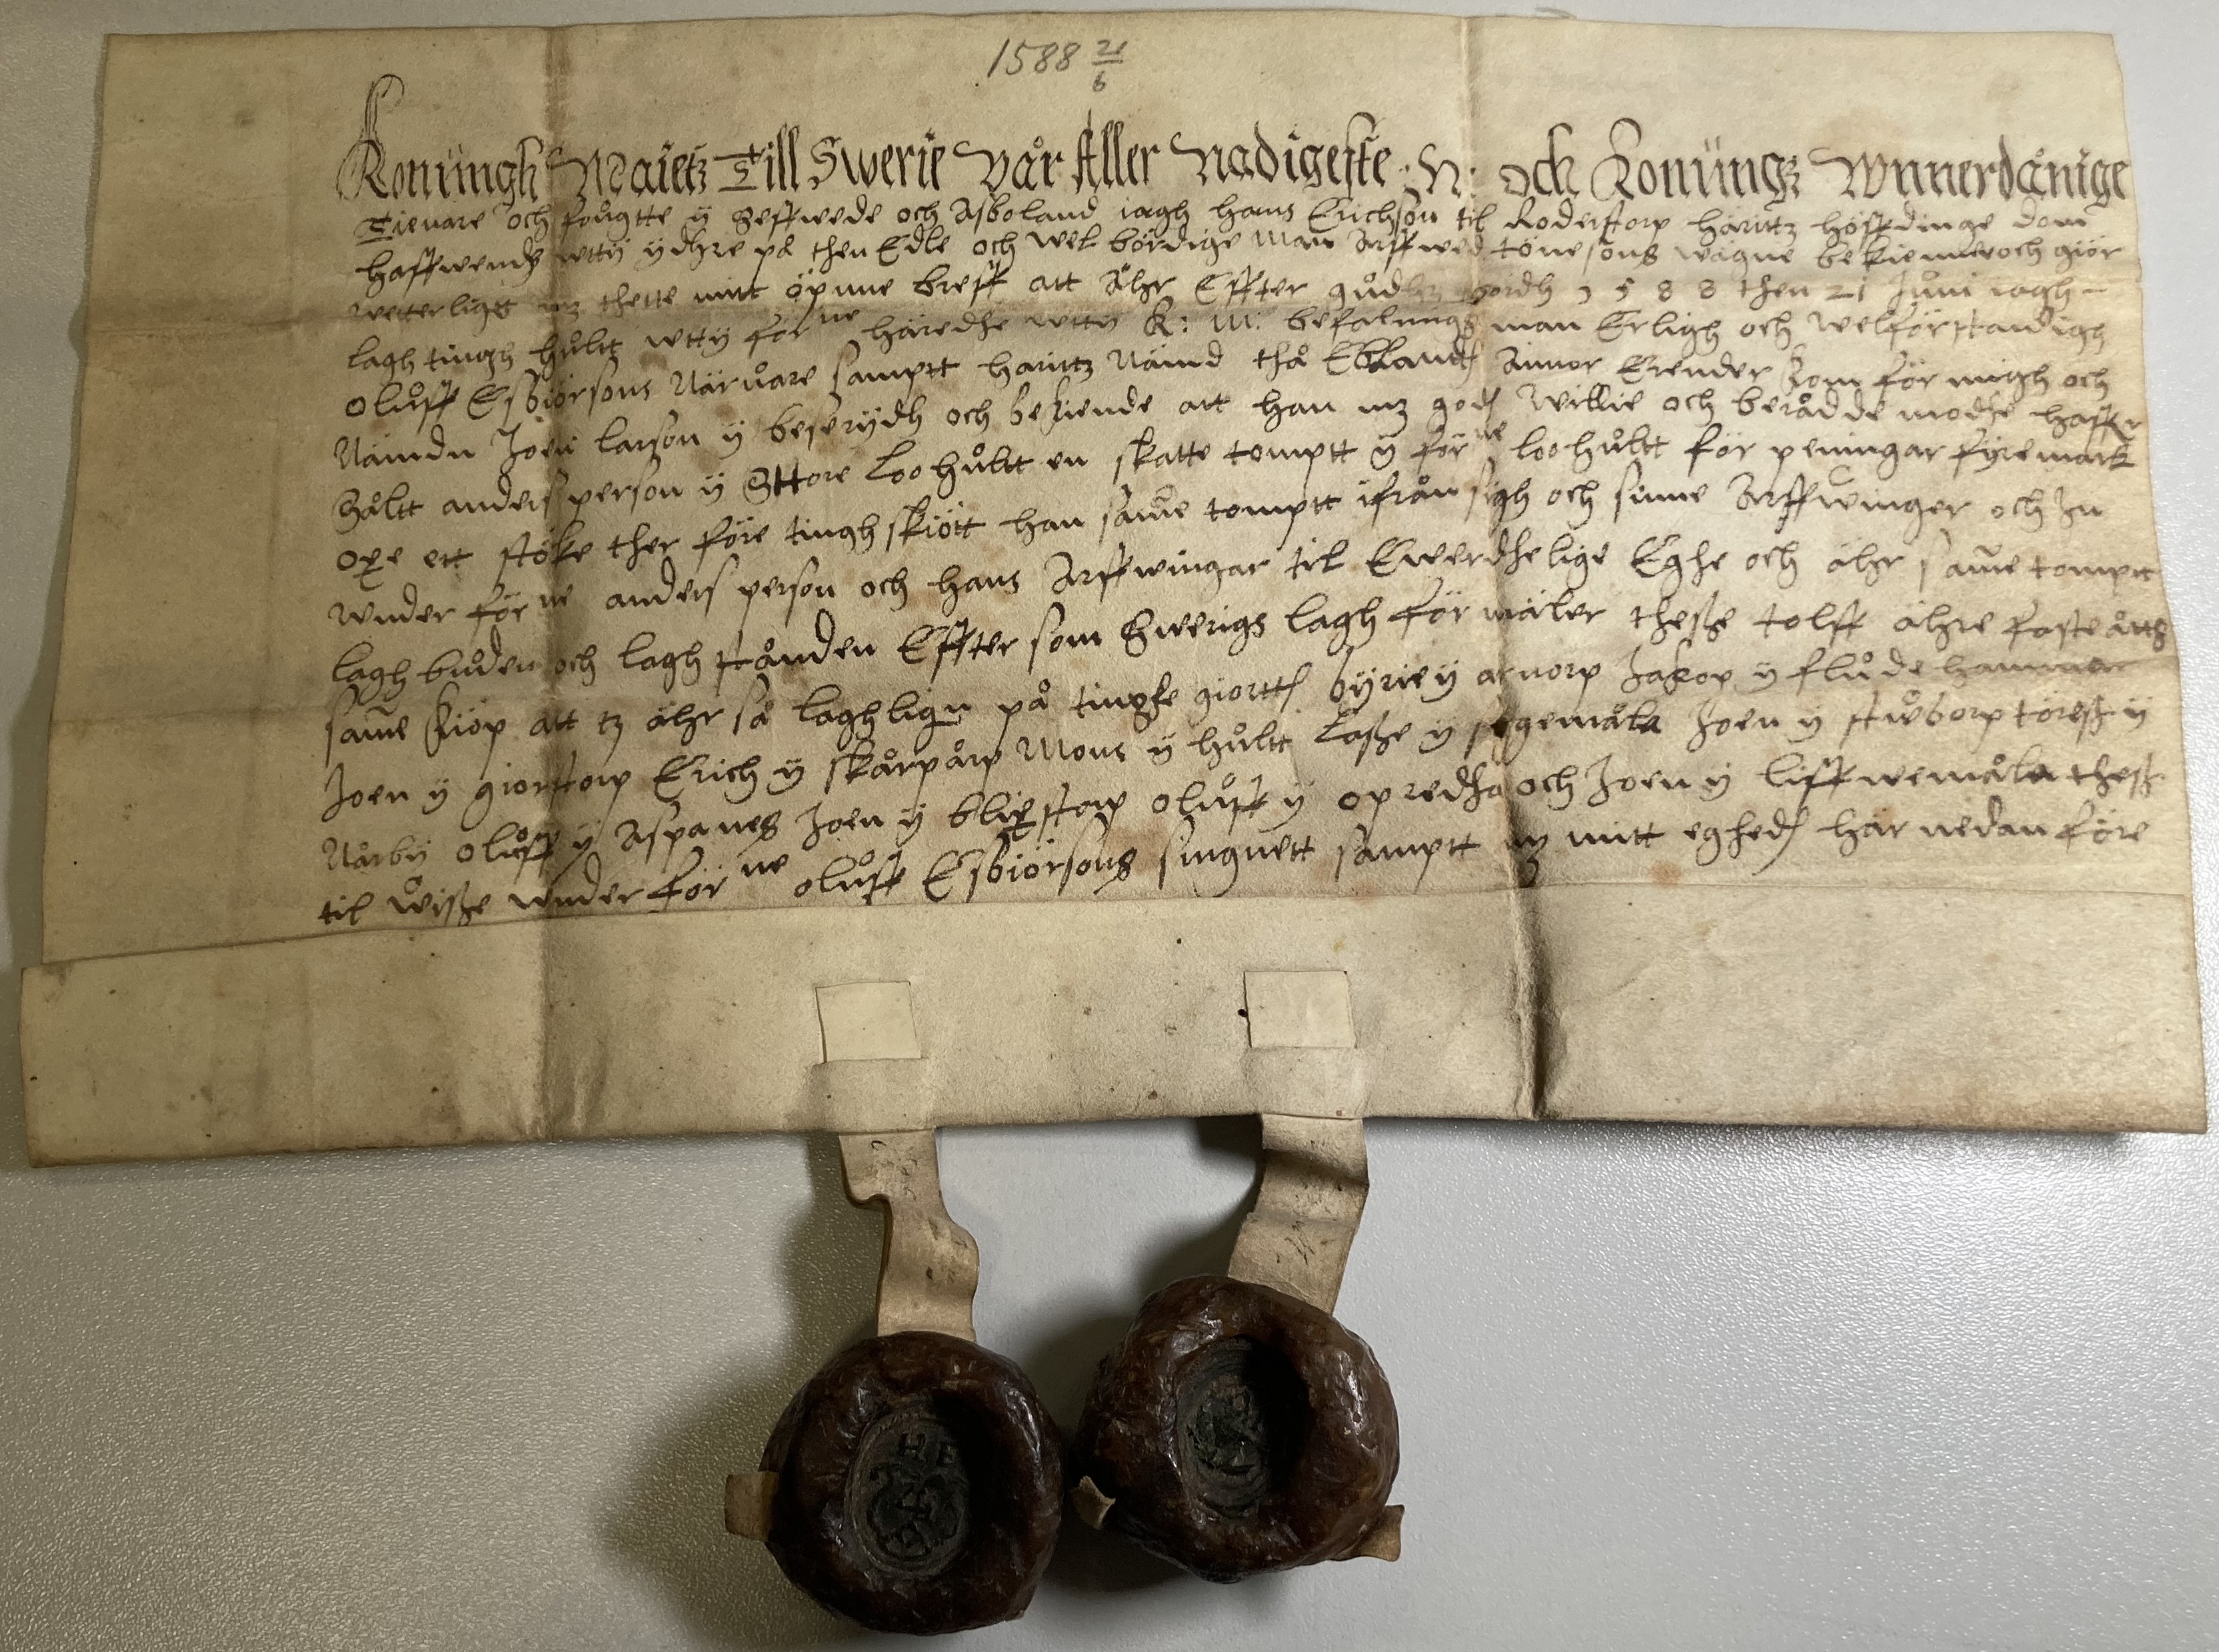 1588 21/6
Konüngh Maietz Till Swerie vår Aller Nadigeste H: och Konüngz Wnnerdånige
Tienare och fougtte ÿ Seffwede och Asboland iagh hans Erichson til Roderstorp häritz höffdinge dom
haffwendz wttÿ ÿdhre på then Edle och wel bördige man Arffwed tönesons wägne bekienner och giör
witterligt mz thette mitt öpnne breff att Åhr Effter gudhz byrdh 1588 then 21 Juni iagh
lagh tingh hultt wttÿ för ne häredhe wttÿ K: M: befalnings man Erligh och welförstandigh
oluff Esbiörsons Närvare samptt häritz Nämd thå Ebland Annor Erender kom för migh och
Nämdn Joen larson ÿ beserÿdh och bekiende att han mz godh willie och berådde modhe haffr
Såltt anders person ÿ Sttore loohultt en skatte tomptt ÿ för ne loohultt för peningar fÿremark
oxe ett stöke ther före tingh skiött han same tomptt ifrån sigh och sinne Arffwinger och In
wnder för ne anders person och hans Arffwingar til Ewerdhelige Eghe och ähr same tomptt
lagh buden och lagh stånden Effter som Swerigs lagh för mäler thesse tolff ähre faste åtts
same kiöp att tz ähr så laghlign på tinghe giortt bÿrie ÿ arnorp Jakop ÿ flude hammar
Joen ÿ giorstorp Erich ÿ skårpårp Mons ÿ hultt lasse ÿ segemåla Joen ÿ stuborp töress ÿ
Nårbÿ oluff ÿ Aspanes Joen ÿ blixstorp oluff ÿ opredha och Joen ÿ liffwemåla thess
til wisse wnder för ne oluff Esbiörsons singnett samptt mz mitt eghed här nedan före
HE